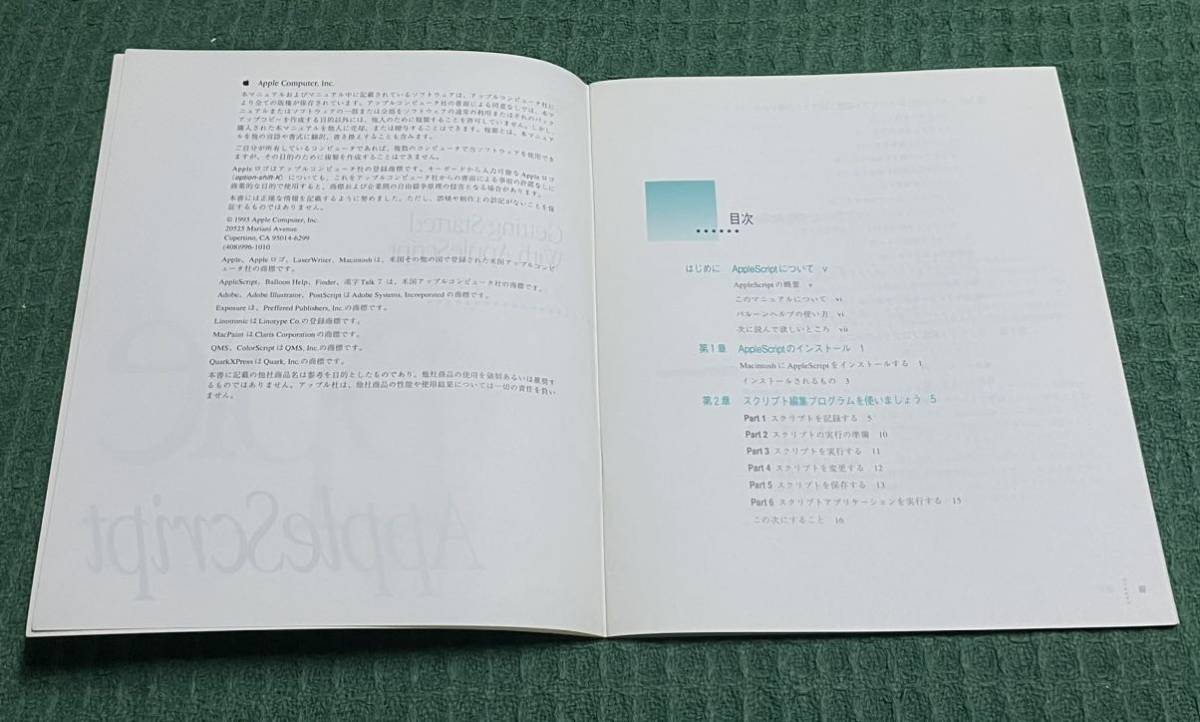 Apple Computer, Inc.
本マニュアルおよびマニュアル中に記載されているソフトウェアは、アップルコンピュータ社に
より全ての版権が保存されています。アップルコンピュータ社の書面による同意なしでは、本マ
ニュアルまたはソフトウェアの一部または全部をソフトウェアの通常の利用またはそれのバック
アップコピーを作成する目的以外には、他人のために複製することを許可していません。しかし、
購入された本マニュアルを他人に売却、または贈与することはできます。複製とは、本マニュア
ルを他の言語や書式に翻訳、書き換えすることも含みます。
ご自分が所有しているコンピュータであれば、複数のコンピュータで当ソフトウェアを使用でき
ますが、その目的のために複製を作成することはできません。
Apple ロゴはアップルコンピュータ社の登録商標です。キーボードから入力可能な Apple ロゴ
(option-shift-K) についても、これをアップルコンピュータ社からの書面による事前の許諾なしに
商業的な目的で使用すると、商標および企業間の自由競争原理の侵害となる場合があります。
本書には正確な情報を記載するように努めました。ただし、誤植や制作上の誤記がないことを保
証するものではありません。
© 1993 Apple Computer, Inc.
20525 Mariani Avenue
Cupertino, CA 95014-6299
(408)996-1010
Apple、Apple ロゴ、LaserWriter、Macintosh は、米国その他の国で登録された米国アップルコンピ
ュータ社の商標です。
AppleScript、Balloon Help、Finder、漢字Talk 7 は、米国アップルコンピュータ社の商標です。
Adobe、Adobe Illustrator、PostScript は Adobe Systems, Incorporated の商標です。
Exposure は、Preffered Publishers, Inc. の商標です。
Linotronic は Linotype Co. の登録商標です。
MacPaint は Claris Corporation の商標です。
QMS、ColorScript は QMS, Inc. の商標です。
QuarkXPress は Quark, Inc. の商標です。
本書に記載の他社商品名は参考を目的としたものであり、他社商品の使用を強制あるいは推奨す
るものではありません。アップル社は、他社商品の性能や使用結果については一切の責任を負い
ません。
Getting Started
With AppleScript
AppleScript
目次
はじめに AppleScriptについて v
AppleScriptの概要 v
このマニュアルについて vi
バルーンヘルプの使い方 vi
次に読んで欲しいところ vii
第1章 AppleScriptのインストール 1
MacintoshにAppleScriptをインストールする 1
インストールされるもの 3
第2章 スクリプト編集プログラムを使いましょう 5
Part 1 スクリプトを記録する 5
Part 2 スクリプトの実行の準備 10
Part 3 スクリプトを実行する 11
Part 4 スクリプトを変更する 12
Part 5 スクリプトを保存する 13
Part 6 スクリプトアプリケーションを実行する 15
この次にすること 16